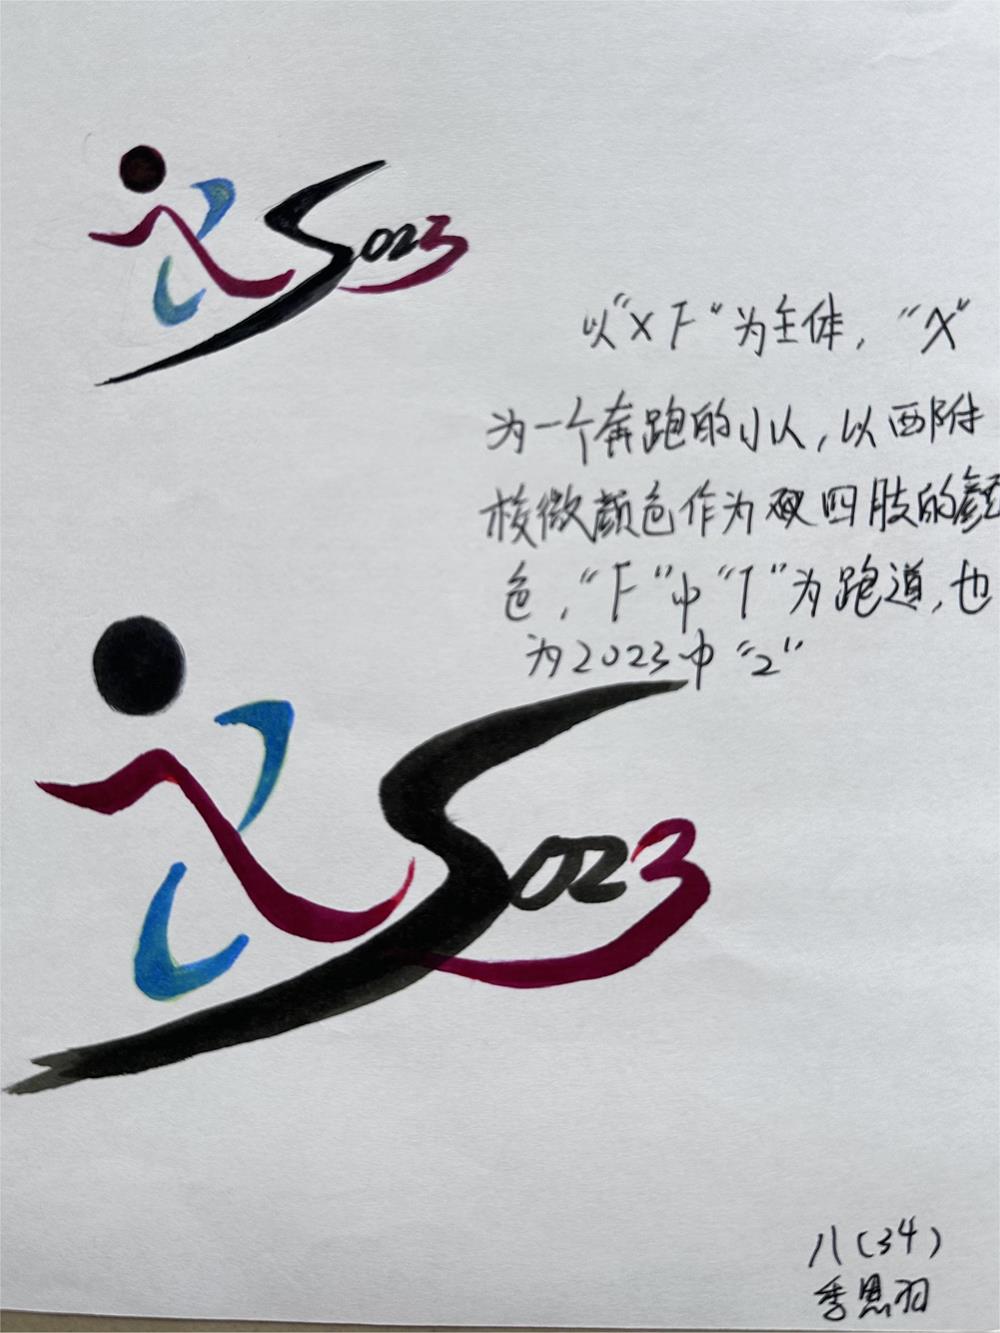 023
以“XF”为主体，“X”
为一个奔跑的小人，以西附
校徽颜色作为双四肢的颜
色，“F”中“1”为跑道，也
为2023中“2”
023
八(34)
季思羽